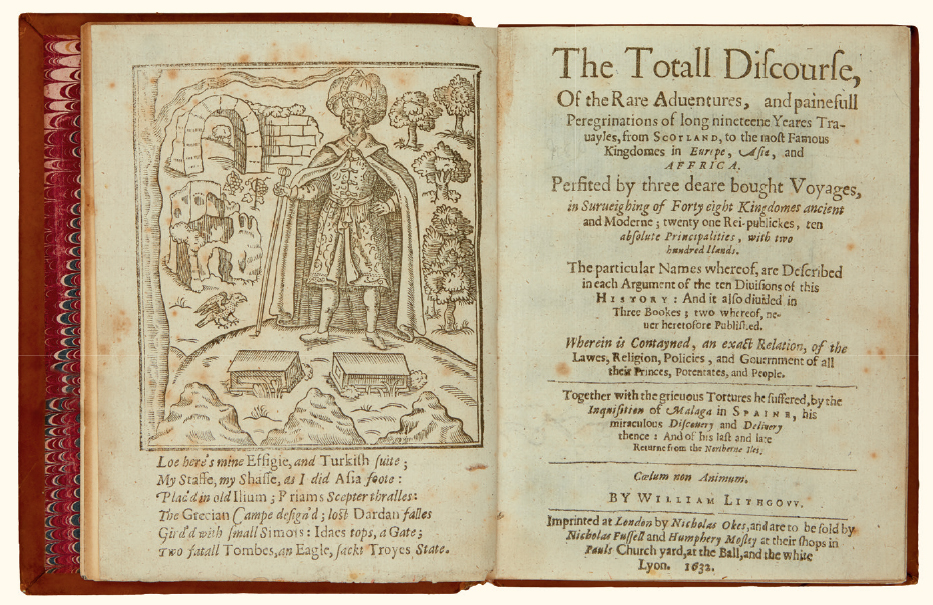 Loe here's mine Effigie, and Turkish suite;
My Staffe, my Shasse, as I did Asia foote:
Plac'd in old Ilium; Priams Scepter thralles:
The Grecian Campe design'd; lost Dardan falles
Gird'd with small Simois: Idaes tops, a Gate;
Two fatall Tombes, an Eagle, sackt Troyes State.
The Totall Diſcourſe,
Of the Rare Aduentures, and painefull
Peregrinations of long nineteene Yeares Tra-
uayles, from SCOTLAND, to the moſt Famous
Kingdomes in Europe, Aſia, and
AFFRICA.
Perfited by three deare bought Voyages,
in Surueighing of Forty eight Kingdomes ancient
and Moderne; twenty one Rei-publickes, ten
abſolute Principalities, with two
hundred Ilands.
The particular Names whereof, are Deſcribed
in each Argument of the ten Diuiſions of this
HISTORY: And it alſo diuided in
Three Bookes; two whereof, ne-
uer heretofore Publiſhed.
Wherein is Contayned, an exact Relation, of the
Lawes, Religion, Policies, and Gouernment of all
their Princes, Potentates, and People.
Together with the grieuous Tortures he ſuffered, by the
Inquiſition of Malaga in SPAINE, his
miraculous Diſcouery and Deliuery
thence: And of his laſt and late
Returne from the Northerne Iles.
Cœlum non Animum.
BY WILLIAM LITHGOVV.
Imprinted at London by Nicholas Okes, and are to be ſold by
Nicholas Fuſſell and Humphery Moſley at their ſhops in
Pauls Church yard, at the Ball, and the white
Lyon. 1632.